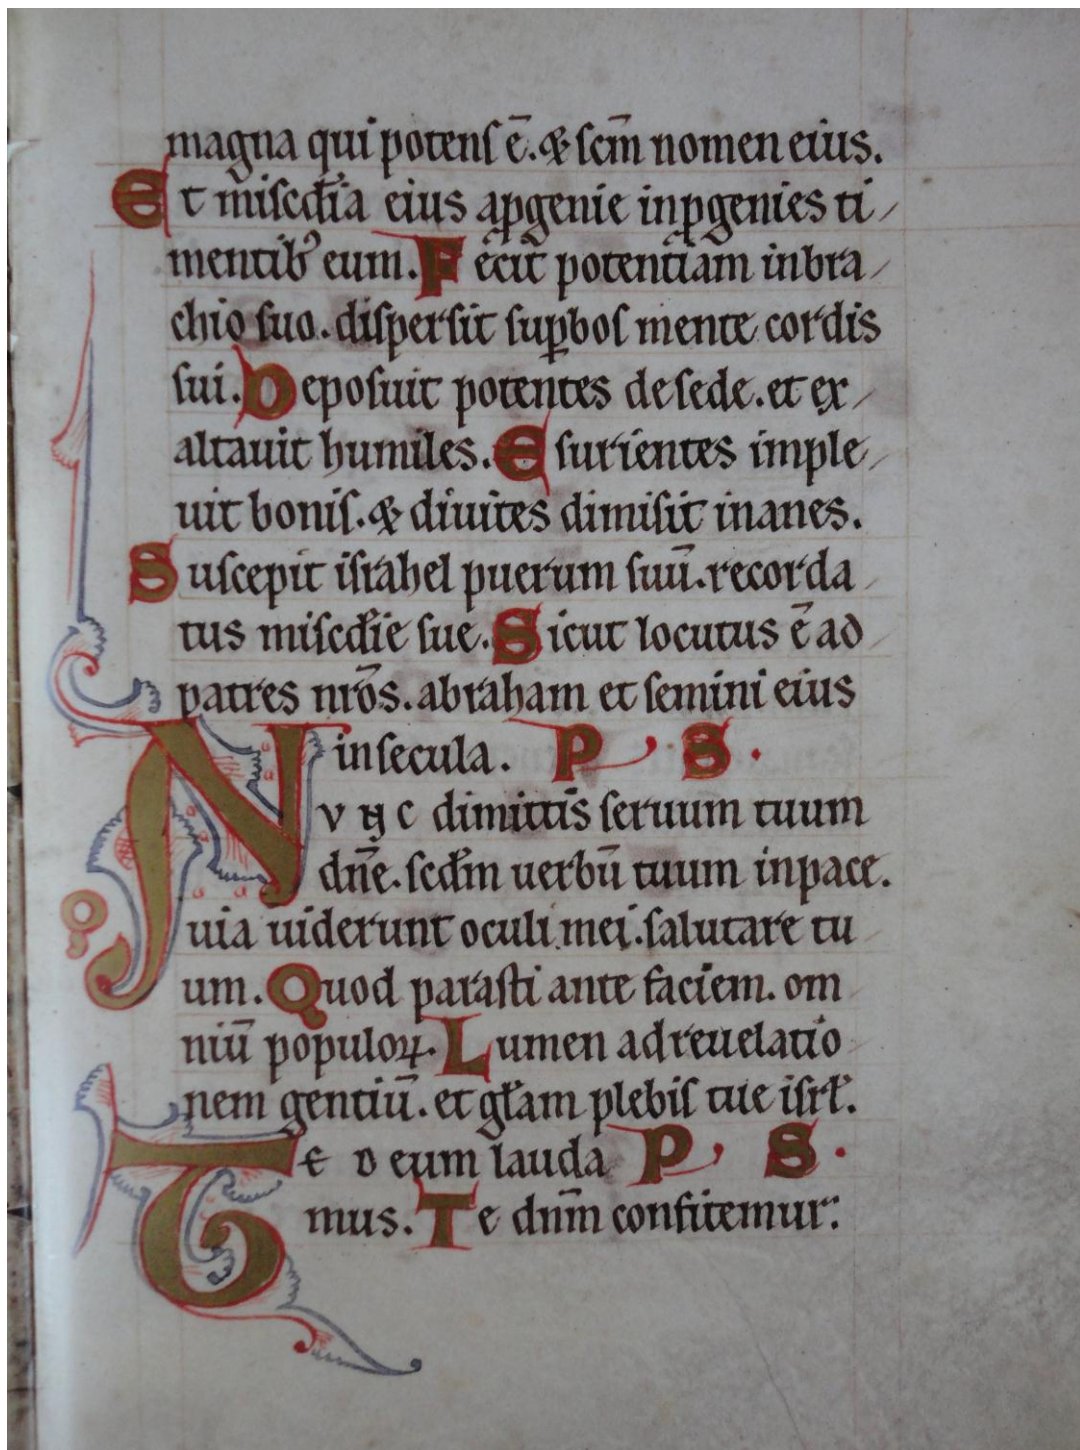 magna qui potenſ ē. & ſcm̄ nomen eius.
Et miſcd̄ia eius aꝓgenie inꝓgenies ti
mentib⁹ eum. Fecit potentiam inbra
chio ſuo. diſperſit ſuꝑboſ mente cordis
ſui. Depoſuit potentes deſede. et ex
altauit humiles. Eſurientes imple
uit boniſ. & diuites dimiſit inanes.
Suſcepit iſrahel puerum ſuū. recorda
tus miſcd̄ie ſue. Sicut locutus ē ad
patres nr̄os. abraham et ſemini eius
inſecula. P S.
Nunc dimittis ſeruum tuum
dn̄e. ſcd̄m uerbū tuum inpace.
Quia uiderunt oculi mei. ſalutare tu
um. Quod paraſti ante faciem. om
niū populoꝝ. Lumen adreuelatio
nem gentiū. et gl̄am plebiſ tue iſrl̄.
Te Deum lauda P S.
mus. Te dn̄m confitemur.